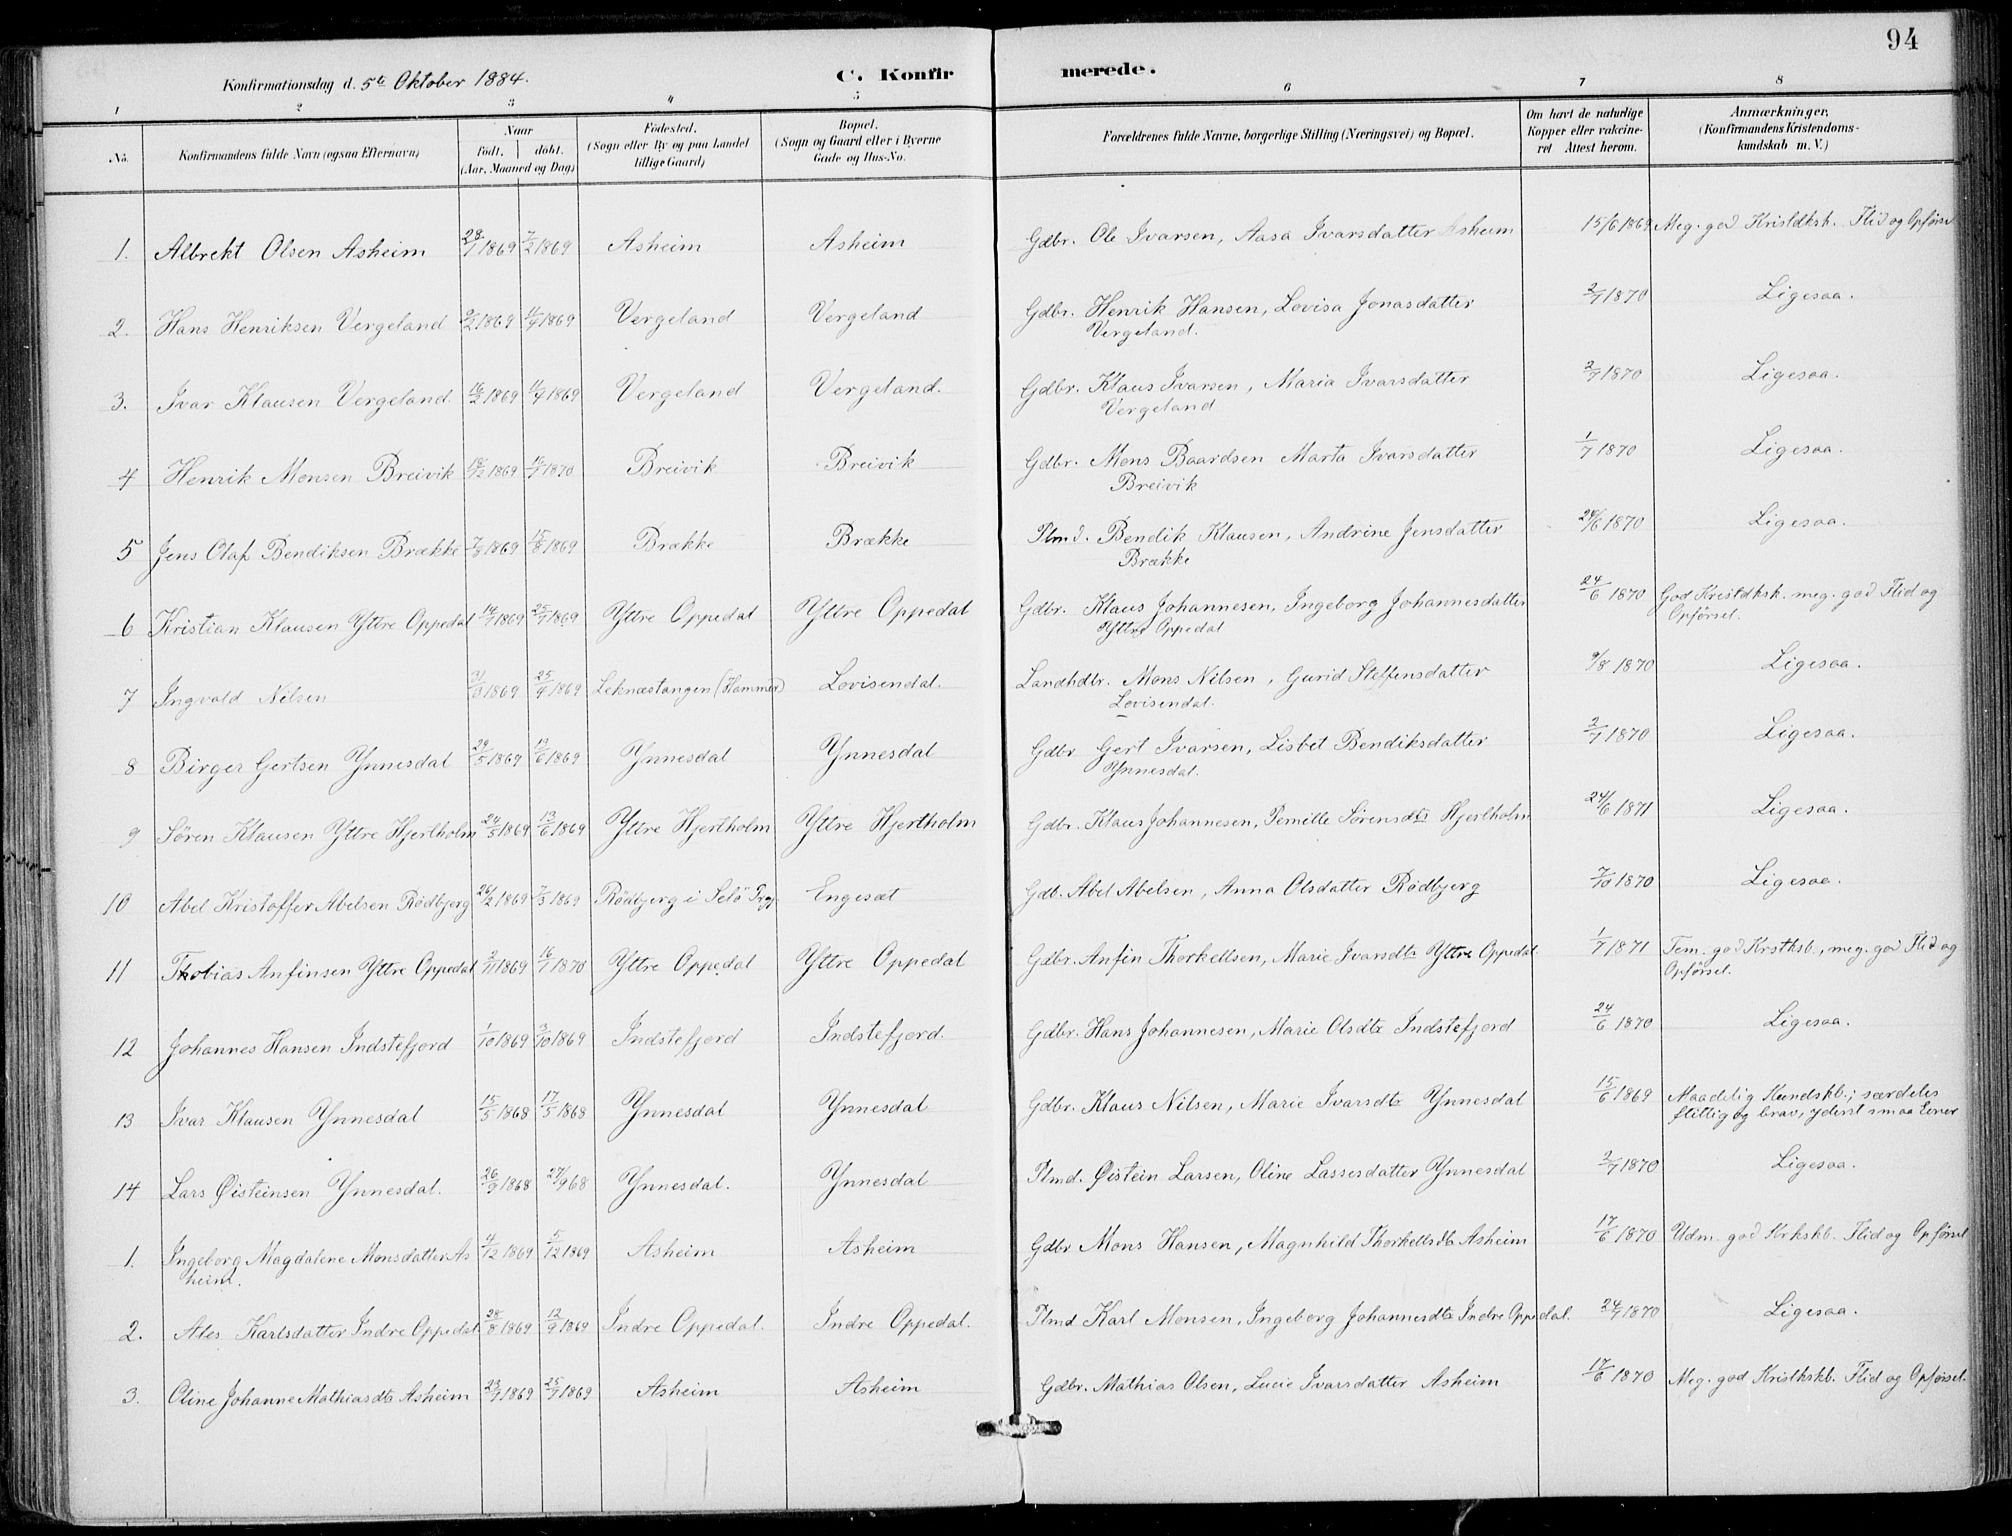 94
Konfirmationsdag d. 5te Oktober 1884.
C. Konfirmerede.
1 2 3 4 5 6 7 8
No. | Konfirmandens fulde Navn (ogsaa Efternavn) | Naar født. | døbt. (Aar, Maaned og Dag) | Fødested. (Sogn eller By og paa Landet tillige Gaard) | Bopæl. (Sogn og Gaard eller i Byerne Gade og Hus-No. | Forældrenes fulde Navne, borgerlige Stilling (Næringsvei) og Bopæl. | Om havt de naturlige Kopper eller vakcineret Attest herom. | Anmærkninger. (Konfirmandens Kristendomskundskab m. V.)
1. Albrekt Olsen Asheim 28/1 1869 7/2 1869 Asheim Asheim Gdbr. Ole Ivarsen, Aasa Ivarsdatter Asheim 15/6 1869 Meg. god Kristdksk. Flid og Opførsel
2. Hans Henriksen Vergeland 1869 1869 Vergeland Vergeland Gdbr. Henrik Hansen, Lovisa Jonasdatter 2/7 1870 Ligesaa.
Vergeland.
3. Ivar Klausen Vergeland. 16/2 1869 11/4 1869 Vergeland Vergeland. Gdbr. Klaus Ivarsen, Maria Ivarsdatter 2/7 1870 Ligesaa.
Vergeland
4 Henrik Monsen Breivik 1869 1870 Breivik Breivik Gdbr. Mons Baardsen Marta Ivarsdatter 1/7 1870 Ligesaa.
Breivik
5 Jens Olaf Bendiksen Brække 1869 15/8 1869 Brække Brække Plmd. Bendik Klausen, Andrine Jensdatter 24/6 1870 Ligesaa.
Brække
6 Kristian Klausen Yttre Oppedal 14/7 1869 25/7 1869 Yttre Oppedal Yttre Oppedal Gdbr. Klaus Johannesen, Ingeborg Johannesdatter 24/6 1870 God Kristdksk. meg. god Flid og
Yttre Oppedal Opførsel.
7 Ingvald Nilsen 31/3 1869 25/4 1869 Leknæstangen (Hammer) Lovisendal. Landhdbr. Mons Nilsen, Gurid Steffensdatter 9/8 1870 Ligesaa.
Lovisendal.
8 Birger Gertsen Ynnesdal 29/5 1869 13/6 1869 Ynnesdal Ynnesdal Gdbr Gert Ivarsen, Lisbet Bendiksdatter 2/7 1870 Ligesaa.
Ynnesdal.
9 Søren Klausen Yttre Hjertholm 24/5 1869 13/6 1869 Yttre Hjertholm Yttre Hjertholm Gdbr. Klaus Johannesen, Pernille Sørensdtr Hjertholm 24/6 1871 Ligesaa.
10 Abel Kristoffer Abelsen Rødbjerg 26/2 1869 7/3 1869 Rødbjerg i Selö Prgj. Engesæt Gdb. Abel Abelsen, Anna Olsdatter Rødbjerg 7/10 1870 Ligesaa.
11 Thobias Anfinsen Yttre Oppedal 2/11 1869 16/1 1870 Yttre Oppedal Yttre Oppedal Gdbr. Anfin Thorkellsen, Marie Ivarsdtr Yttre Oppedal 1/7 1871 Tem. god Krstksb., meg. god Flid og
Opførsel.
12 Johannes Hansen Indstefjord 1/10 1869 3/10 1869 Indstefjord Indstefjord. Gdbr. Hans Johannesen, Marie Olsdtr Indstefjord 24/6 1870 Ligesaa.
13 Ivar Klausen Ynnesdal 15/5 1868 17/5 1868 Ynnesdal Ynnesdal Gdbr. Klaus Nilsen, Marie Ivarsdtr Ynnesdal 15/6 1869 Maadelig Kundskb.; særdeles
flittig og brav, yderst smaa Evner
14 Lars Øisteinsen Ynnesdal. 26/9 1868 27/9 68 Ynnesdal. Ynnesdal Plmd. Øistein Larsen, Oline Lassesdatter Ynnesdal 2/7 1870 Ligesaa.
1. Ingeborg Magdalene Monsdatter As 4/12 1869 5/12 1869 Asheim Asheim Gdbr Mons Hansen, Magnhild Thorkellsdtr Asheim 17/6 1870 Udm. god Krkskb. Flid og Opførsel
heim.
2. Ales Karlsdatter Indre Oppedal 28/8 1869 12/9 1869 Indre Oppedal. Indre Oppedal. Plmd Karl Monsen, Ingeborg Johannesdtr Indre Oppedal. 1870 Ligesaa.
3. Oline Johanne Mathiasdtr Asheim 23/7 1869 25/7 1869 Asheim Asheim Gdbr. Mathias Olsen, Lucie Ivarsdatter Asheim 17/6 1870 Meg. god Kristkskb. Flid og Opførsel.